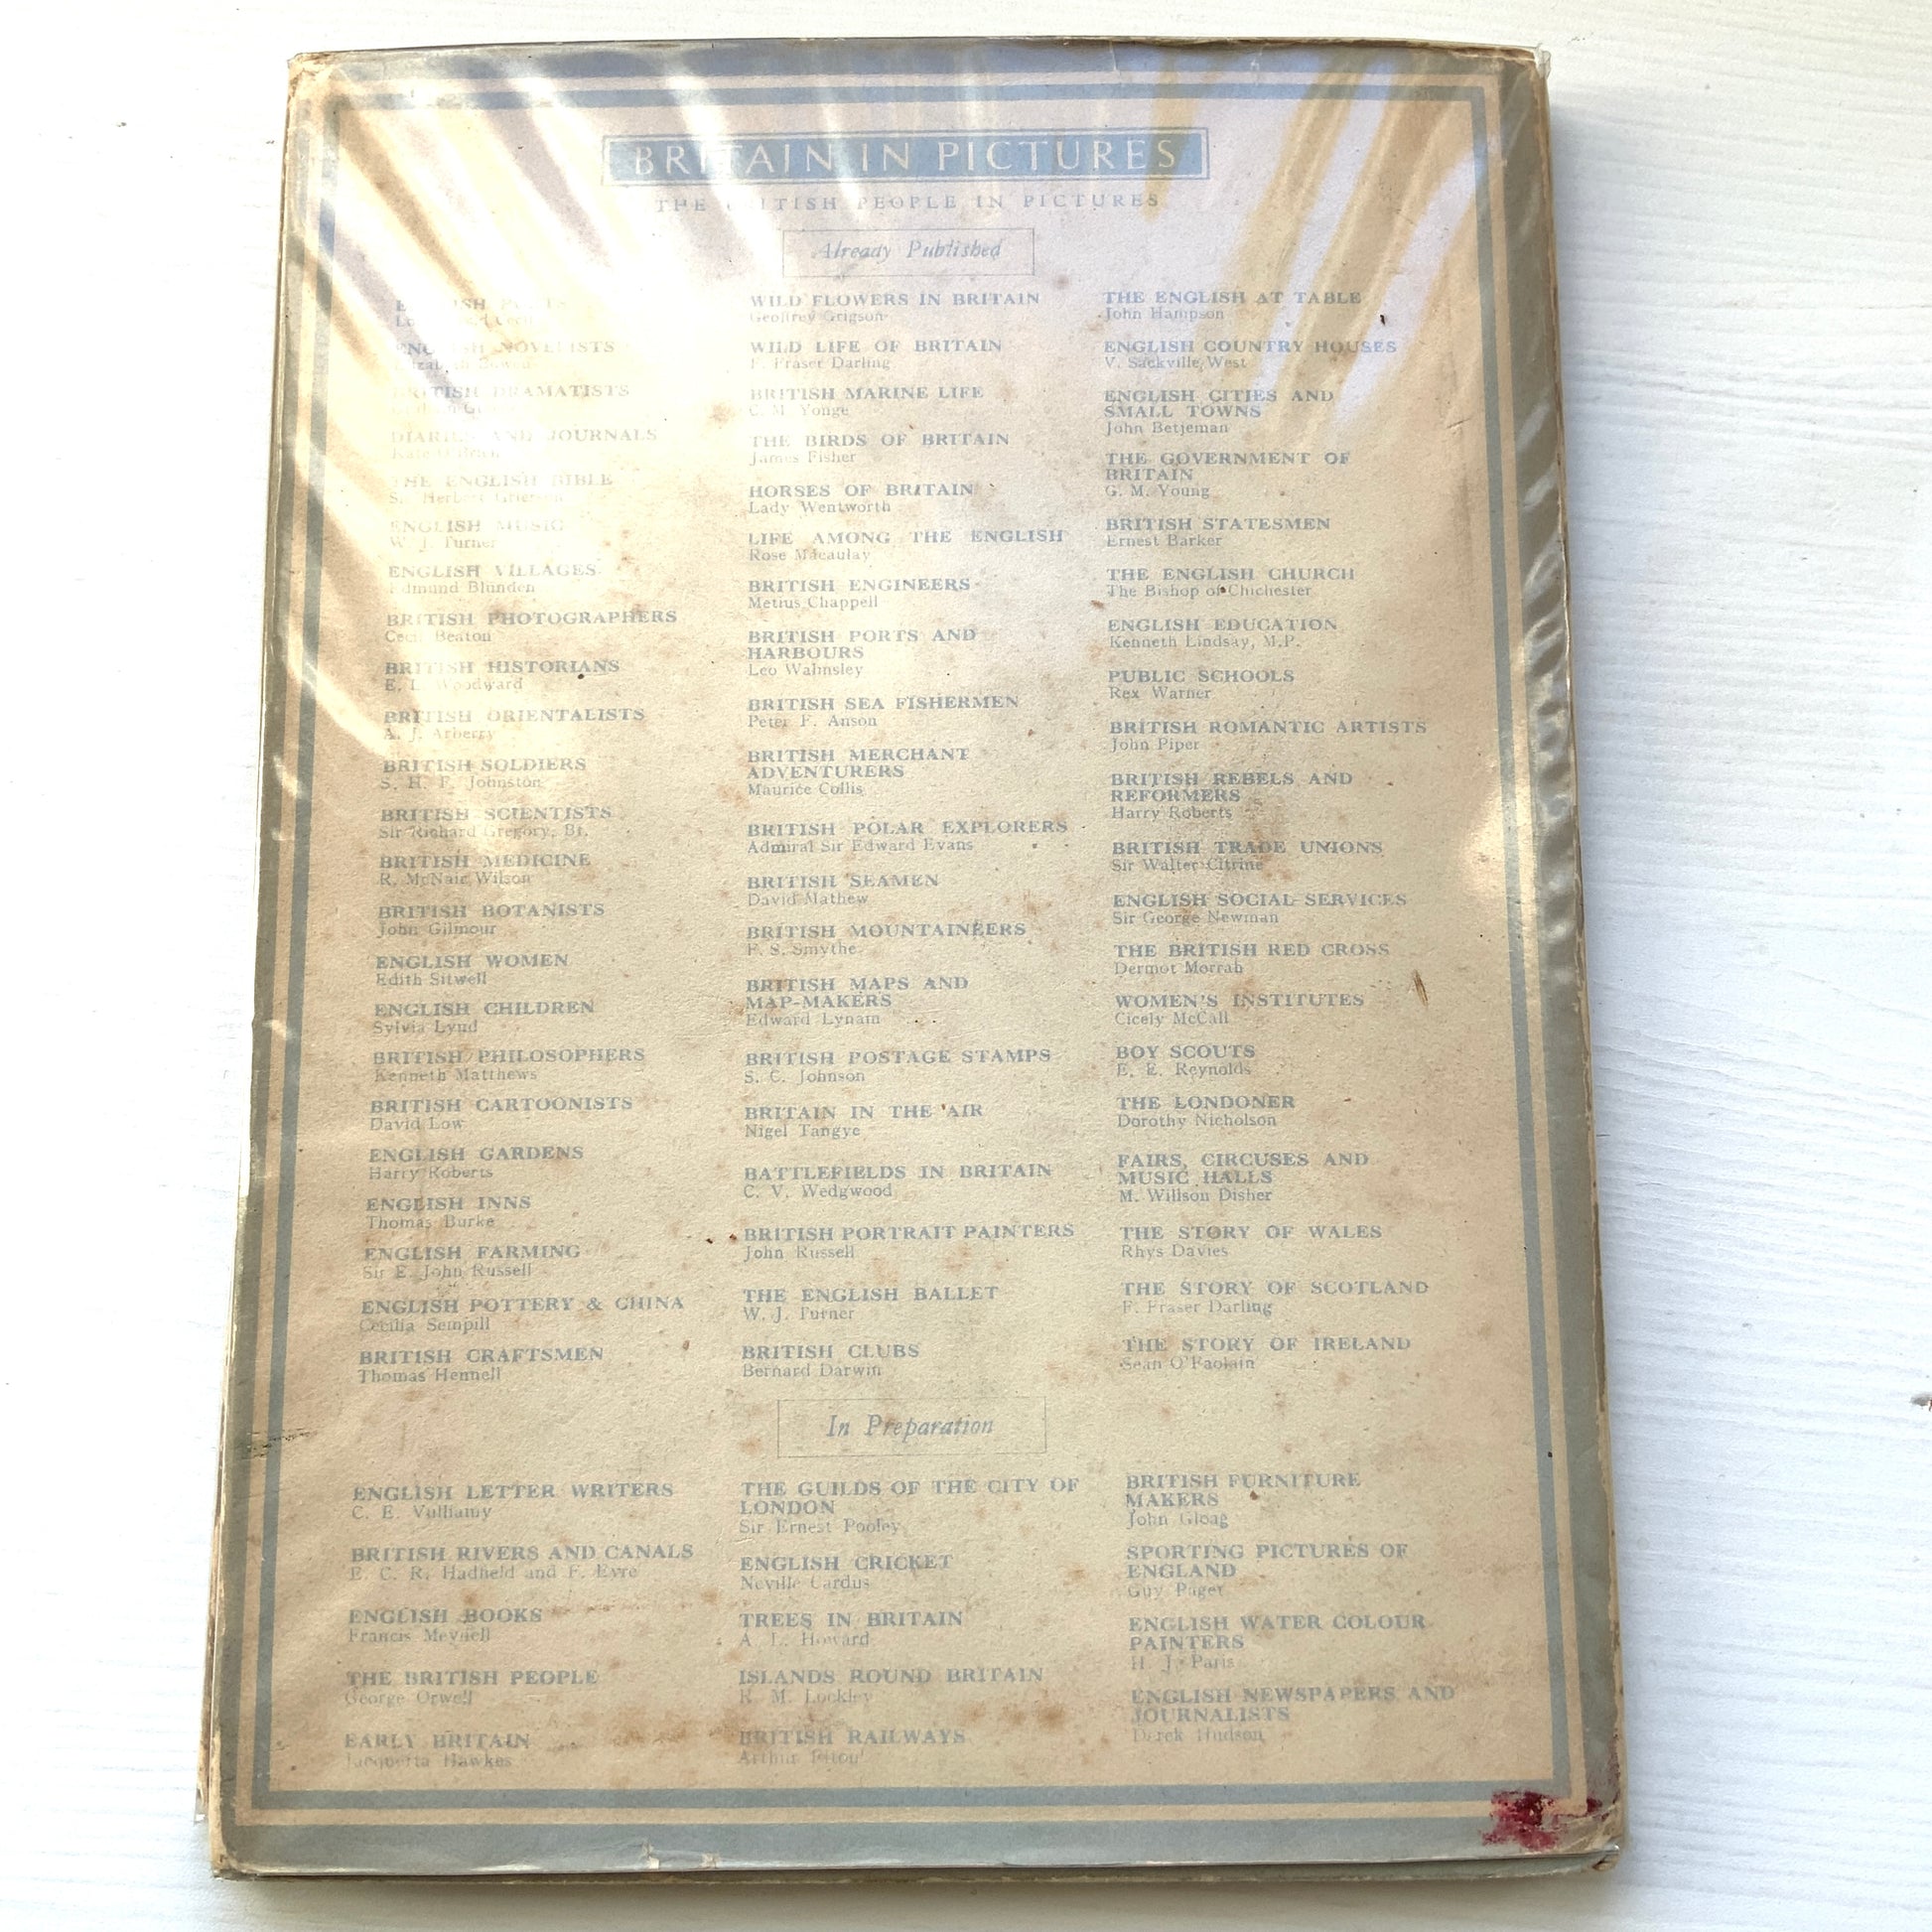 BRITAIN IN PICTURES
THE BRITISH PEOPLE IN PICTURES
Already Published
ENGLISH NOVELISTS
Elizabeth Bowen
BRITISH DRAMATISTS
DIARIES AND JOURNALS
Kate O'Brien
THE ENGLISH BIBLE
Sir Herbert Grierson
ENGLISH MUSIC
W. J. Turner
ENGLISH VILLAGES
Edmund Blunden
BRITISH PHOTOGRAPHERS
Cecil Beaton
BRITISH HISTORIANS
E. L. Woodward
BRITISH ORIENTALISTS
A. J. Arberry
BRITISH SOLDIERS
S. H. F. Johnston
BRITISH SCIENTISTS
Sir Richard Gregory, Bt.
BRITISH MEDICINE
R. McNair Wilson
BRITISH BOTANISTS
John Gilmour
ENGLISH WOMEN
Edith Sitwell
ENGLISH CHILDREN
Sylvia Lynd
BRITISH PHILOSOPHERS
Kenneth Matthews
BRITISH CARTOONISTS
David Low
ENGLISH GARDENS
Harry Roberts
ENGLISH INNS
Thomas Burke
ENGLISH FARMING
Sir E. John Russell
ENGLISH POTTERY & CHINA
Cecilia Sempill
BRITISH CRAFTSMEN
Thomas Hennell
WILD FLOWERS IN BRITAIN
Geoffrey Grigson
WILD LIFE OF BRITAIN
F. Fraser Darling
BRITISH MARINE LIFE
C. M. Yonge
THE BIRDS OF BRITAIN
James Fisher
HORSES OF BRITAIN
Lady Wentworth
LIFE AMONG THE ENGLISH
Rose Macaulay
BRITISH ENGINEERS
Metius Chappell
BRITISH PORTS AND
HARBOURS
Leo Walmsley
BRITISH SEA FISHERMEN
Peter F. Anson
BRITISH MERCHANT
ADVENTURERS
Maurice Collis
BRITISH POLAR EXPLORERS
Admiral Sir Edward Evans
BRITISH SEAMEN
David Mathew
BRITISH MOUNTAINEERS
F. S. Smythe
BRITISH MAPS AND
MAP-MAKERS
Edward Lynam
BRITISH POSTAGE STAMPS
S. C. Johnson
BRITAIN IN THE AIR
Nigel Tangye
BATTLEFIELDS IN BRITAIN
C. V. Wedgwood
BRITISH PORTRAIT PAINTERS
John Russell
THE ENGLISH BALLET
W. J. Turner
BRITISH CLUBS
Bernard Darwin
THE ENGLISH AT TABLE
John Hampson
ENGLISH COUNTRY HOUSES
V. Sackville West
ENGLISH CITIES AND
SMALL TOWNS
John Betjeman
THE GOVERNMENT OF
BRITAIN
G. M. Young
BRITISH STATESMEN
Ernest Barker
THE ENGLISH CHURCH
The Bishop of Chichester
ENGLISH EDUCATION
Kenneth Lindsay, M.P.
PUBLIC SCHOOLS
Rex Warner
BRITISH ROMANTIC ARTISTS
John Piper
BRITISH REBELS AND
REFORMERS
Harry Roberts
BRITISH TRADE UNIONS
Sir Walter Citrine
ENGLISH SOCIAL SERVICES
Sir George Newman
THE BRITISH RED CROSS
Dermot Morrah
WOMEN'S INSTITUTES
Cicely McCall
BOY SCOUTS
E. E. Reynolds
THE LONDONER
Dorothy Nicholson
FAIRS, CIRCUSES AND
MUSIC HALLS
M. Willson Disher
THE STORY OF WALES
Rhys Davies
THE STORY OF SCOTLAND
F. Fraser Darling
THE STORY OF IRELAND
Sean O'Faolain
In Preparation
ENGLISH LETTER WRITERS
C. E. Vulliamy
BRITISH RIVERS AND CANALS
E. C. R. Hadfield and F. Eyre
ENGLISH BOOKS
Francis Meynell
THE BRITISH PEOPLE
George Orwell
EARLY BRITAIN
Jacquetta Hawkes
THE GUILDS OF THE CITY OF
LONDON
Sir Ernest Pooley
ENGLISH CRICKET
Neville Cardus
TREES IN BRITAIN
A. L. Howard
ISLANDS ROUND BRITAIN
R. M. Lockley
BRITISH RAILWAYS
Arthur Elton
BRITISH FURNITURE
MAKERS
John Gloag
SPORTING PICTURES OF
ENGLAND
Guy Paget
ENGLISH WATER COLOUR
PAINTERS
H. J. Paris
ENGLISH NEWSPAPERS AND
JOURNALISTS
Derek Hudson